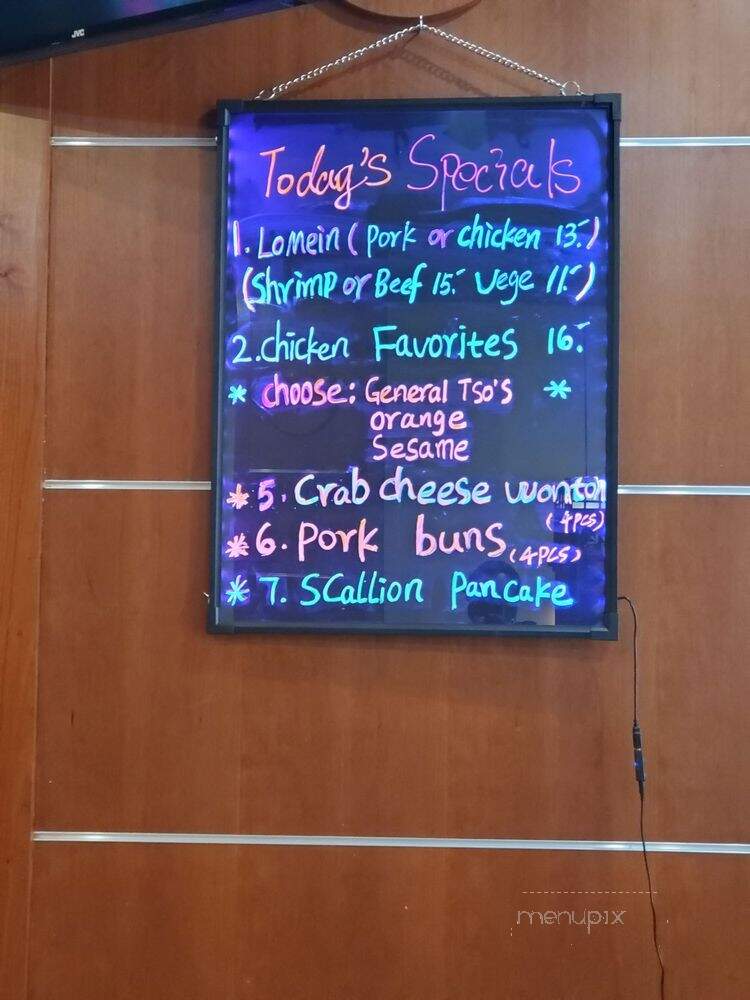 JVC
Today's Specials
1. Lomein ( Pork or chicken 13.-)
(Shrimp or Beef 15.- Vege 11.-)
2. chicken Favorites 16.-
* choose: General Tso's *
orange
Sesame
* 5. Crab cheese wonton
(4pcs)
* 6. Pork buns (4pcs)
* 7. Scallion Pancake
menupix